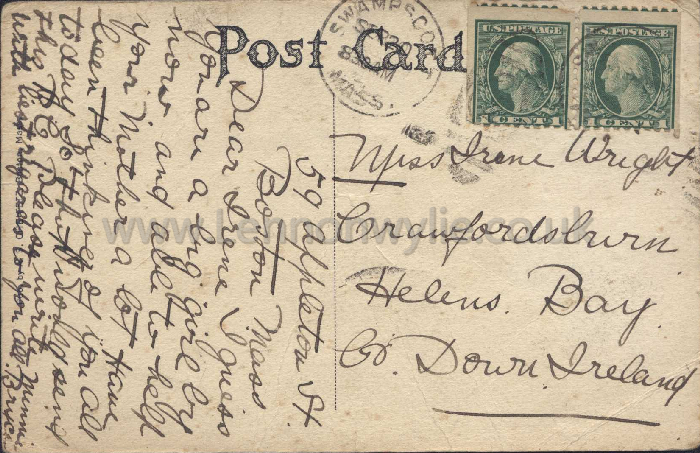 Post Card
SWAMPSCO
MASS.
U.S. POSTAGE
1 CENT 1
U.S. POSTAGE
1 CENT 1
Miss Irene Wright
Crawfordsburn
Helens Bay
Co. Down Ireland
59 Appleton St.
Boston Mass
Dear Irene I guess
you are a big girl by
now and able to help
your Mother a lot have
been thinking of you all
today so thought I send
this P.C. Please write Minnie
with best to you all. Bruce
www.Lennonwylie.co.uk